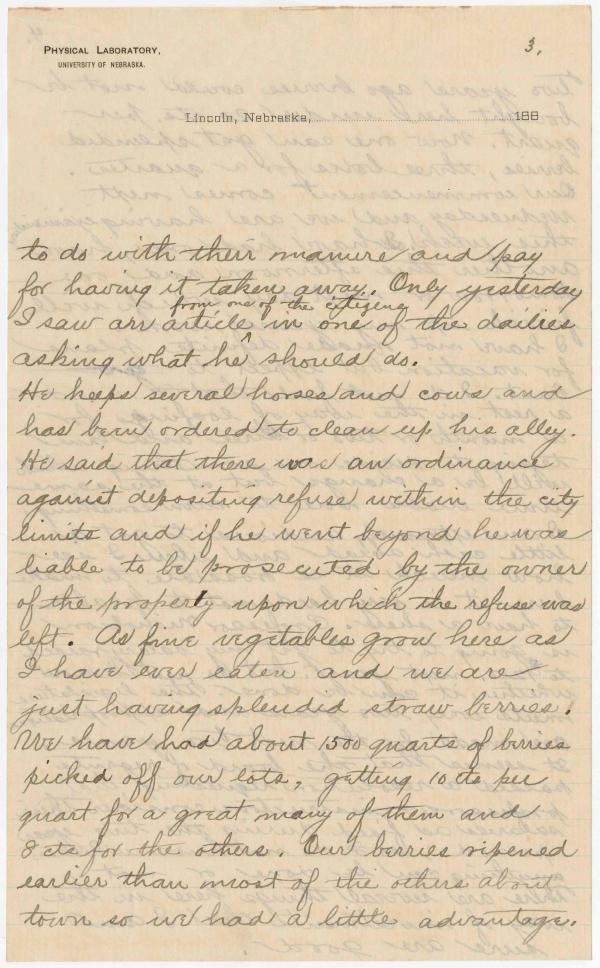 3,
PHYSICAL LABORATORY,
UNIVERSITY OF NEBRASKA.
Lincoln, Nebraska, 188
to do with their manure and pay
for having it taken away. Only yesterday
from one of the citizens
I saw an article ^ in one of the dailies
asking what he should do.
He keeps several horses and cows and
has been ordered to clean up his alley.
He said that there was an ordinance
against depositing refuse within the city
limits and if he went beyond he was
liable to be prosecuted by the owner
of the property upon which the refuse was
left. As fine vegetables grow here as
I have ever eaten and we are
just having splendid straw berries.
We have had about 1500 quarts of berries
picked off our lots, getting 10 cts per
quart for a great many of them and
8 cts for the others. Our berries ripened
earlier than most of the others about
town so we had a little advantage.